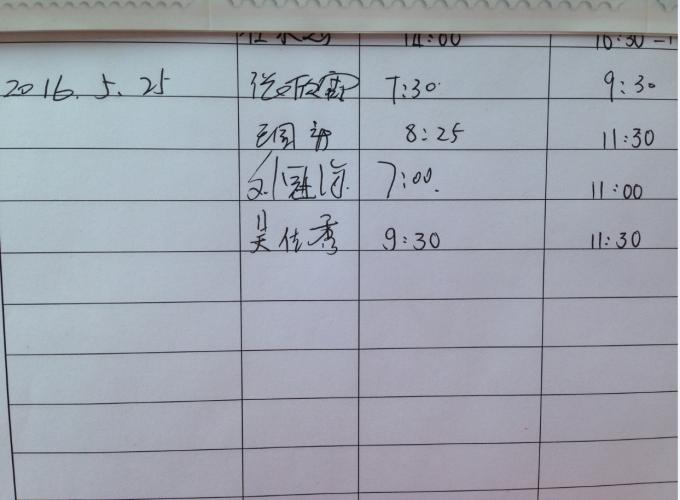 14:00 16:30
2016.5.25 7:30 9:30
王国 8:25 11:30
刘 7:00. 11:00
吴佳秀 9:30 11:30